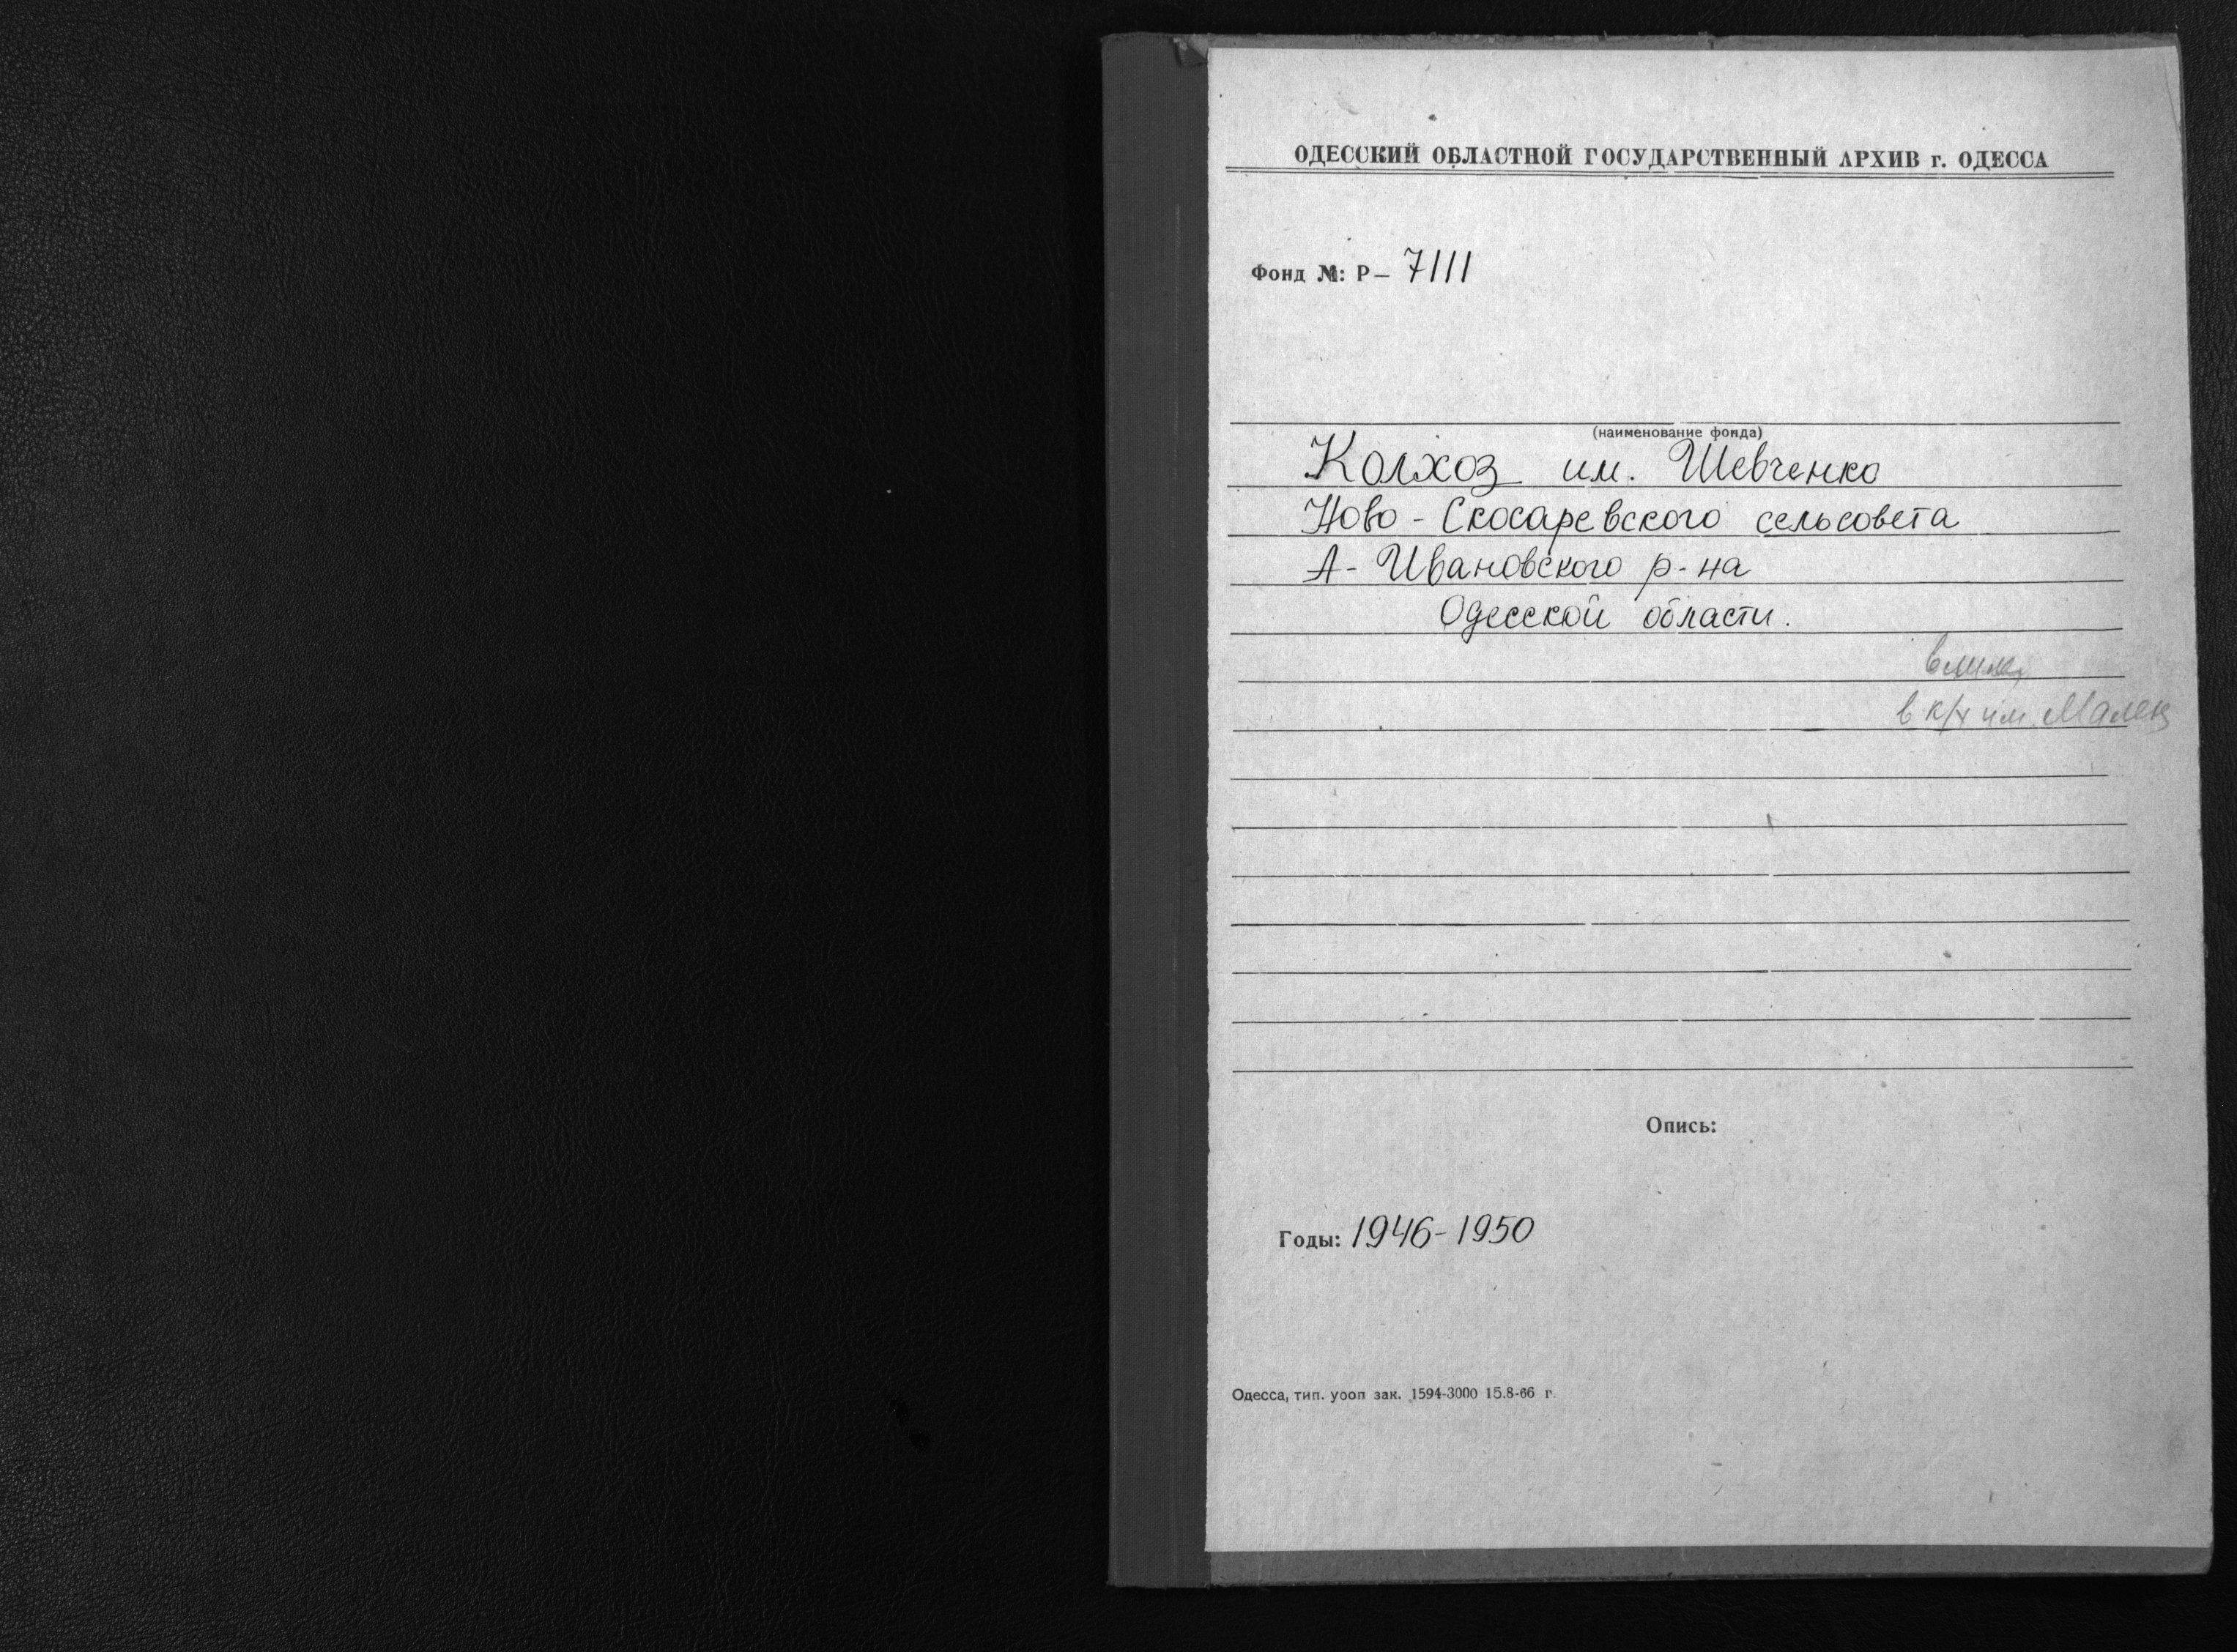 ОДЕССКИЙ ОБЛАСТНОЙ ГОСУДАРСТВЕННЫЙ АРХИВ г. ОДЕССА
Фонд №: Р— 7111
(наименование фонда)
Колхоз им. Шевченко
Ново - Скосаревского сельсовета
А- Ивановского р-на
Одесской области.
в к/х им.
Опись:
Годы: 1946-1950
Одесса, тип. уооп зак. 1594-3000 15.8-66 г.